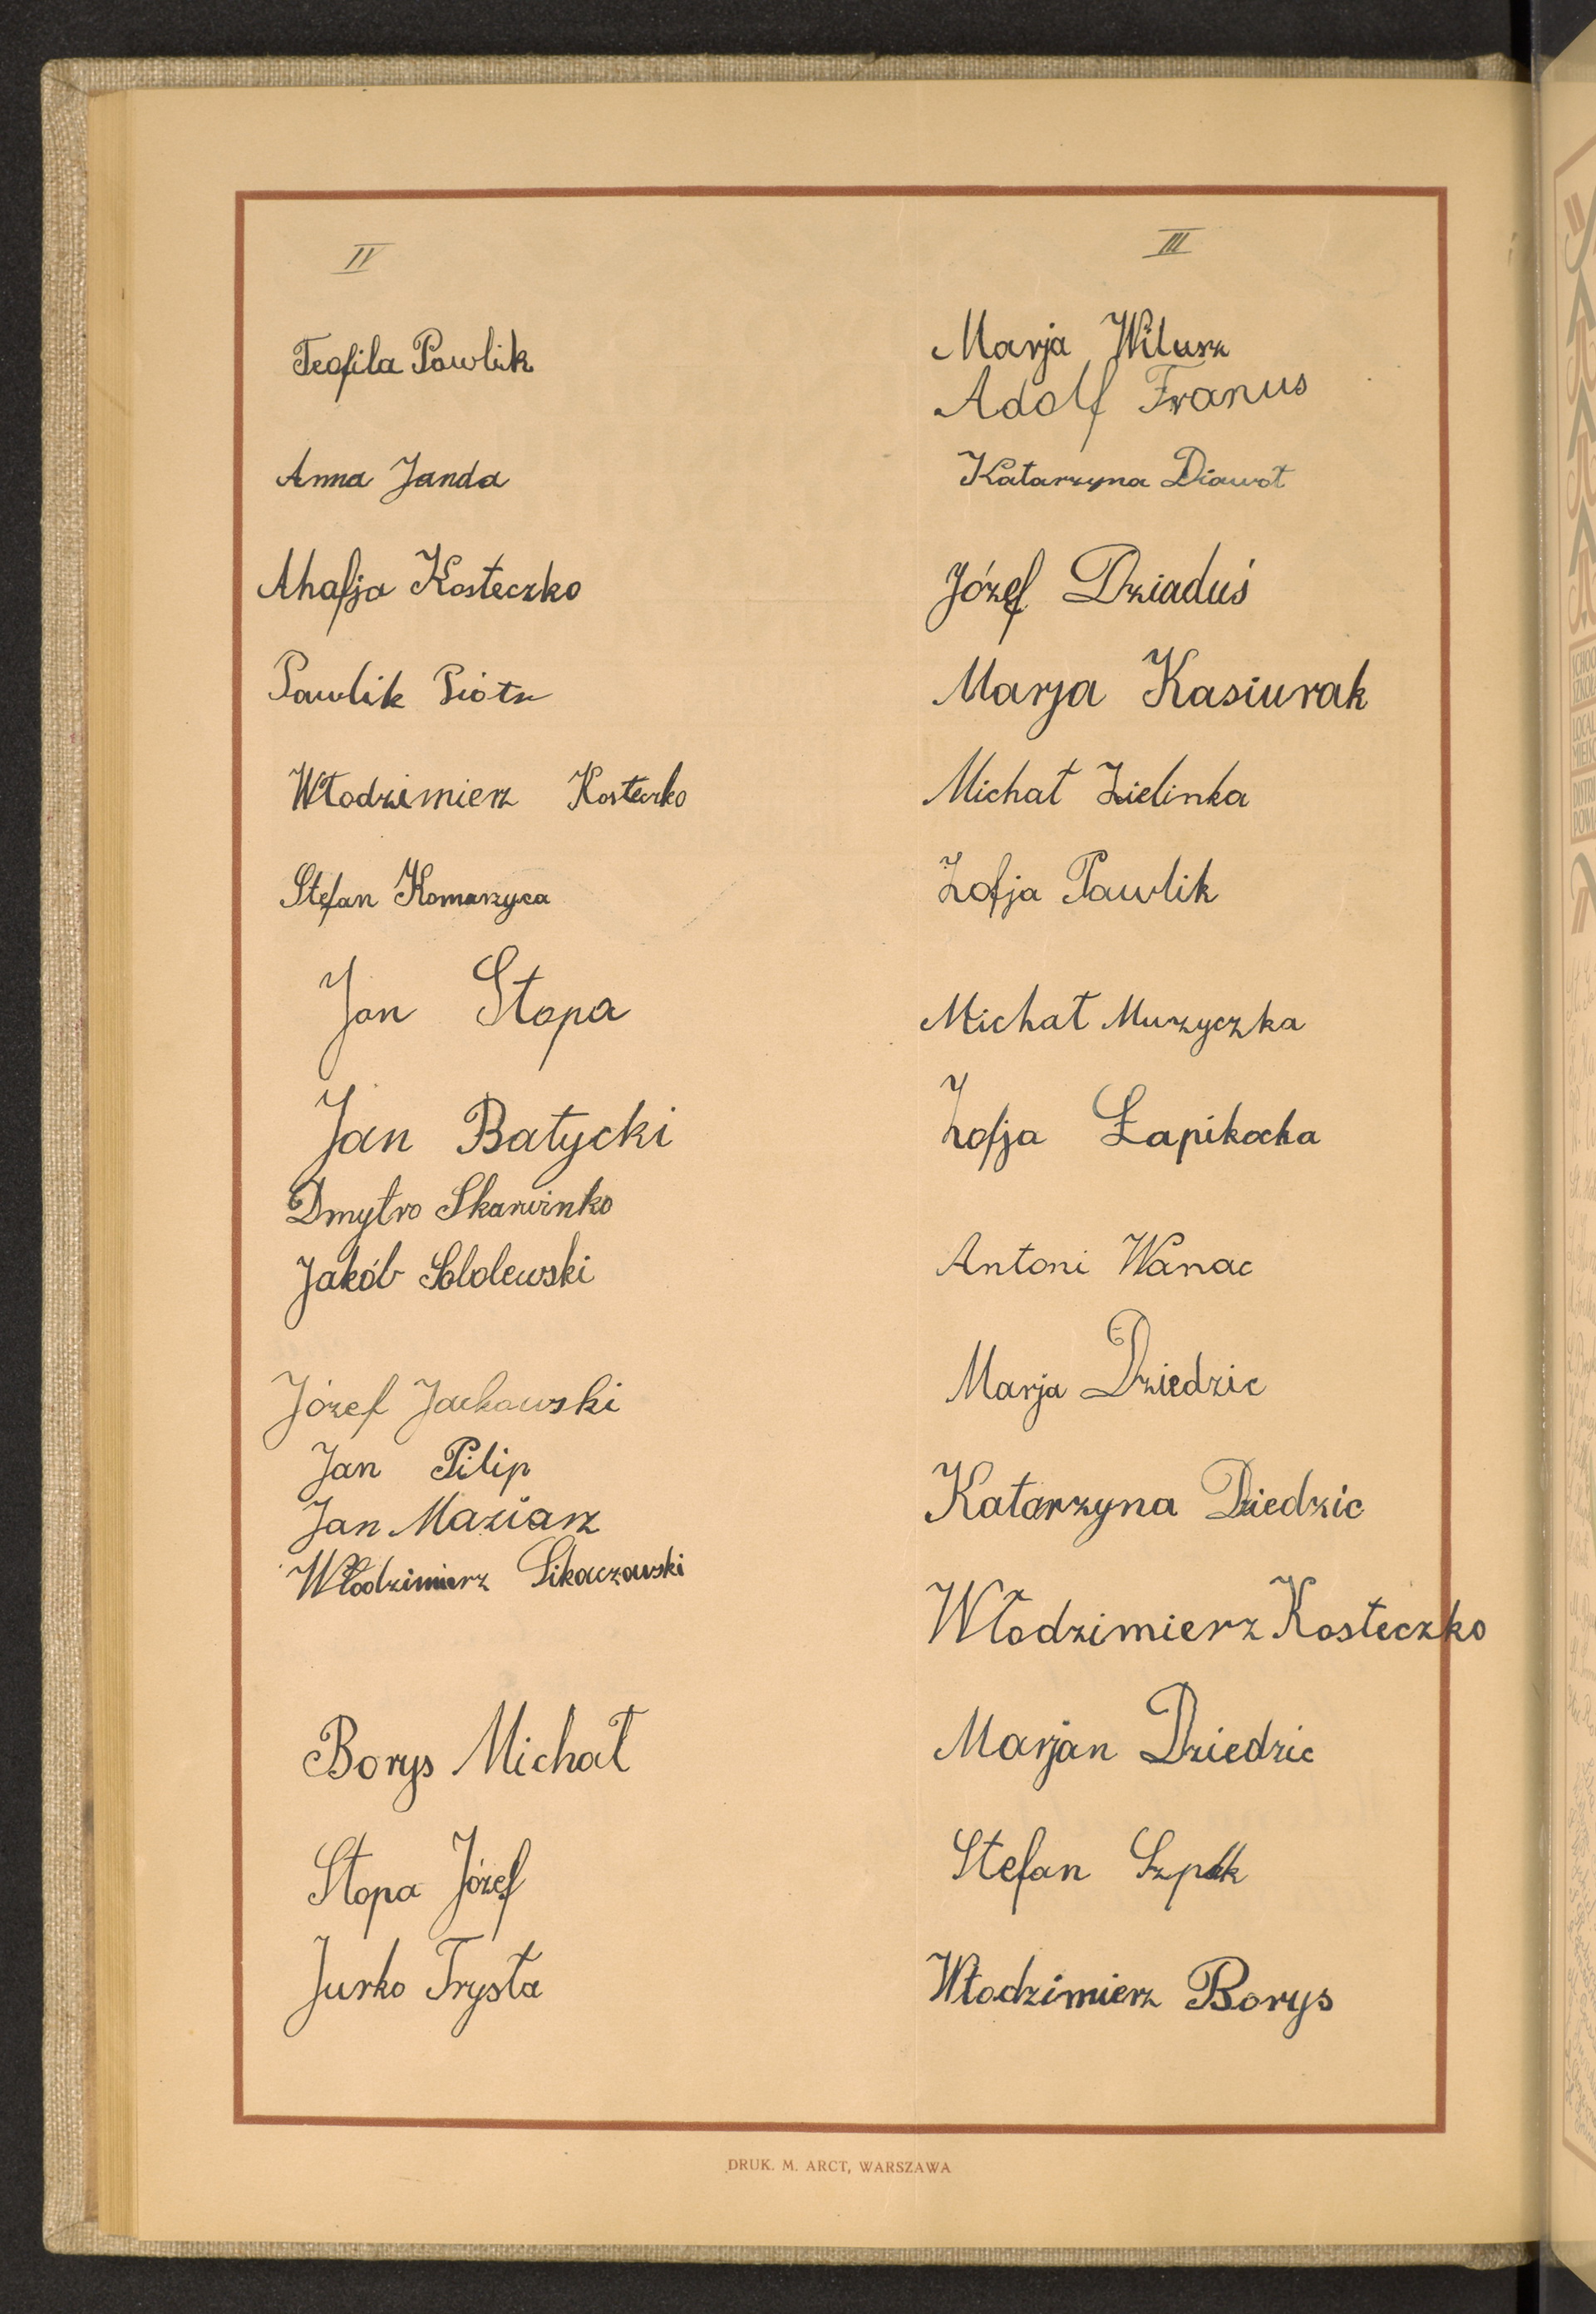 IV
Teofila Pawlik
Anna Janda
Ahafja Kosteczko
Pawlik Piotr
Włodzimierz Kosteczko
Stefan Komarzyca
Jan Stopa
Jan Batycki
Dmytro Skarwinko
Jakób Sobolewski
Józef Jackowski
Jan Pilip
Jan Maziarz
Włodzimierz Sikaczowski
Borys Michał
Stopa Józef
Jurko Trysła
III
Marja Wilusz
Adolf Franus
Katarzyna
Józef Dziaduś
Marja Kasiurak
Michał Zielinka
Zofja Pawlik
Michał Muzyczka
Zofja Łapikocha
Antoni Wanac
Marja Dziedzic
Katarzyna Dziedzic
Włodzimierz Kosteczko
Marjan Dziedzic
Stefan
Włodzimierz Borys
DRUK. M. ARCT, WARSZAWA